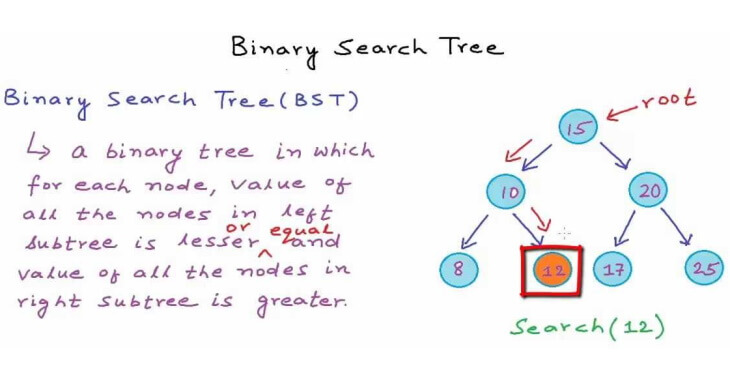 Binary Search Tree
Binary Search Tree(BST)
↳ a binary tree in which
for each node, value of
all the nodes in left
or equal
subtree is lesser ^ and
value of all the nodes in
right subtree is greater.
root
15
10
20
8
12
17
25
Search(12)